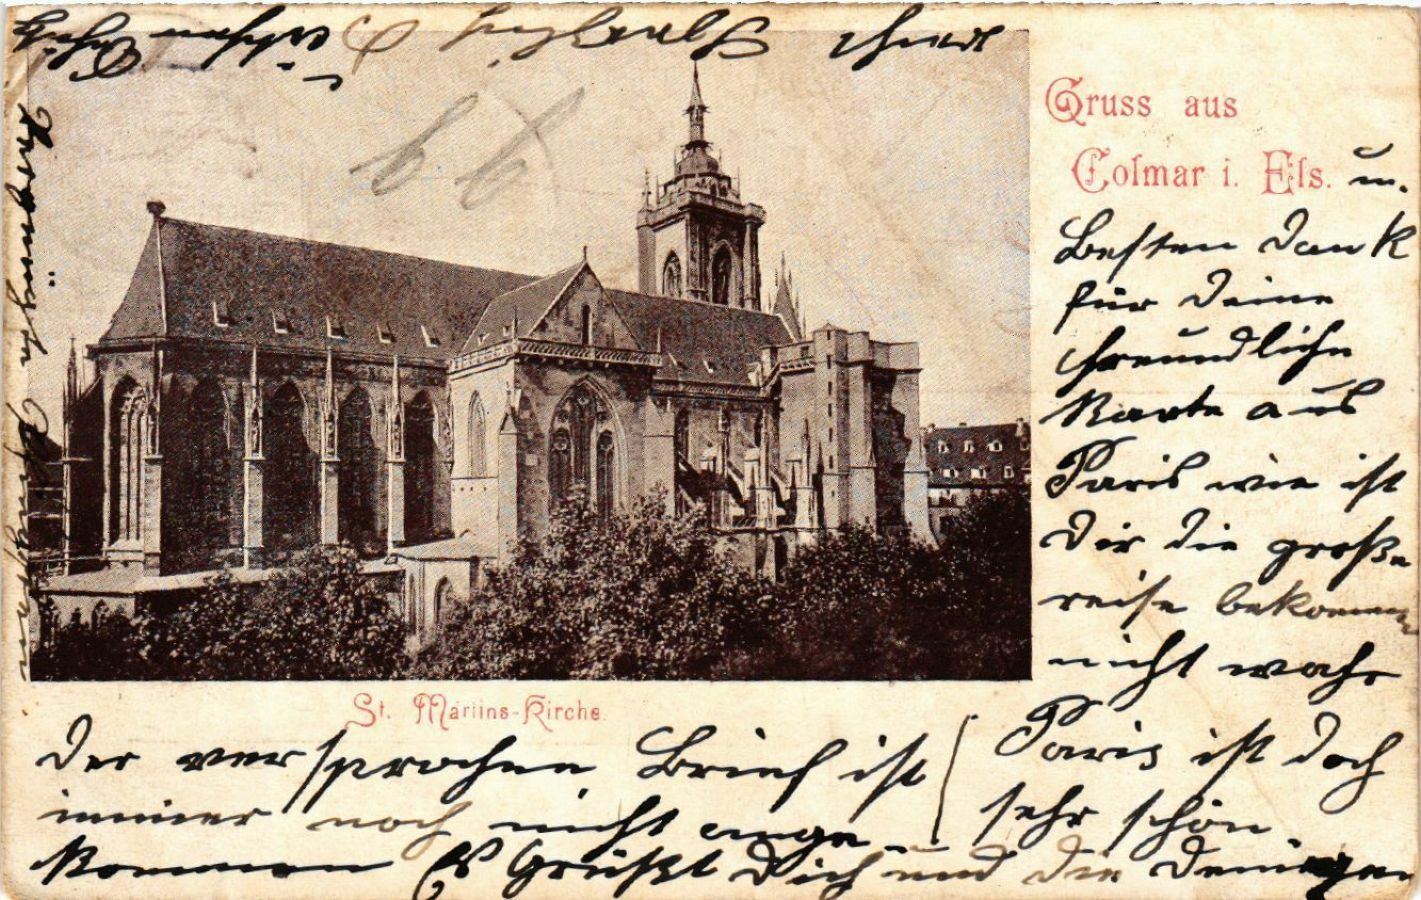 Gruss aus
Colmar i. Els.
u.
besten Dank
für Deine
freundliche
Karte aus
Paris wie ist
Dir die große
reise bekommen
nicht wahr
Paris ist doch
sehr schön.
St. Martins-Kirche.
Der versprochne Brief ist
immer noch nicht ange-
kommen Es Grüßt Dich und die Deinigen